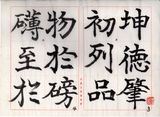 坤德肇
初列品
物於磅
礴至於